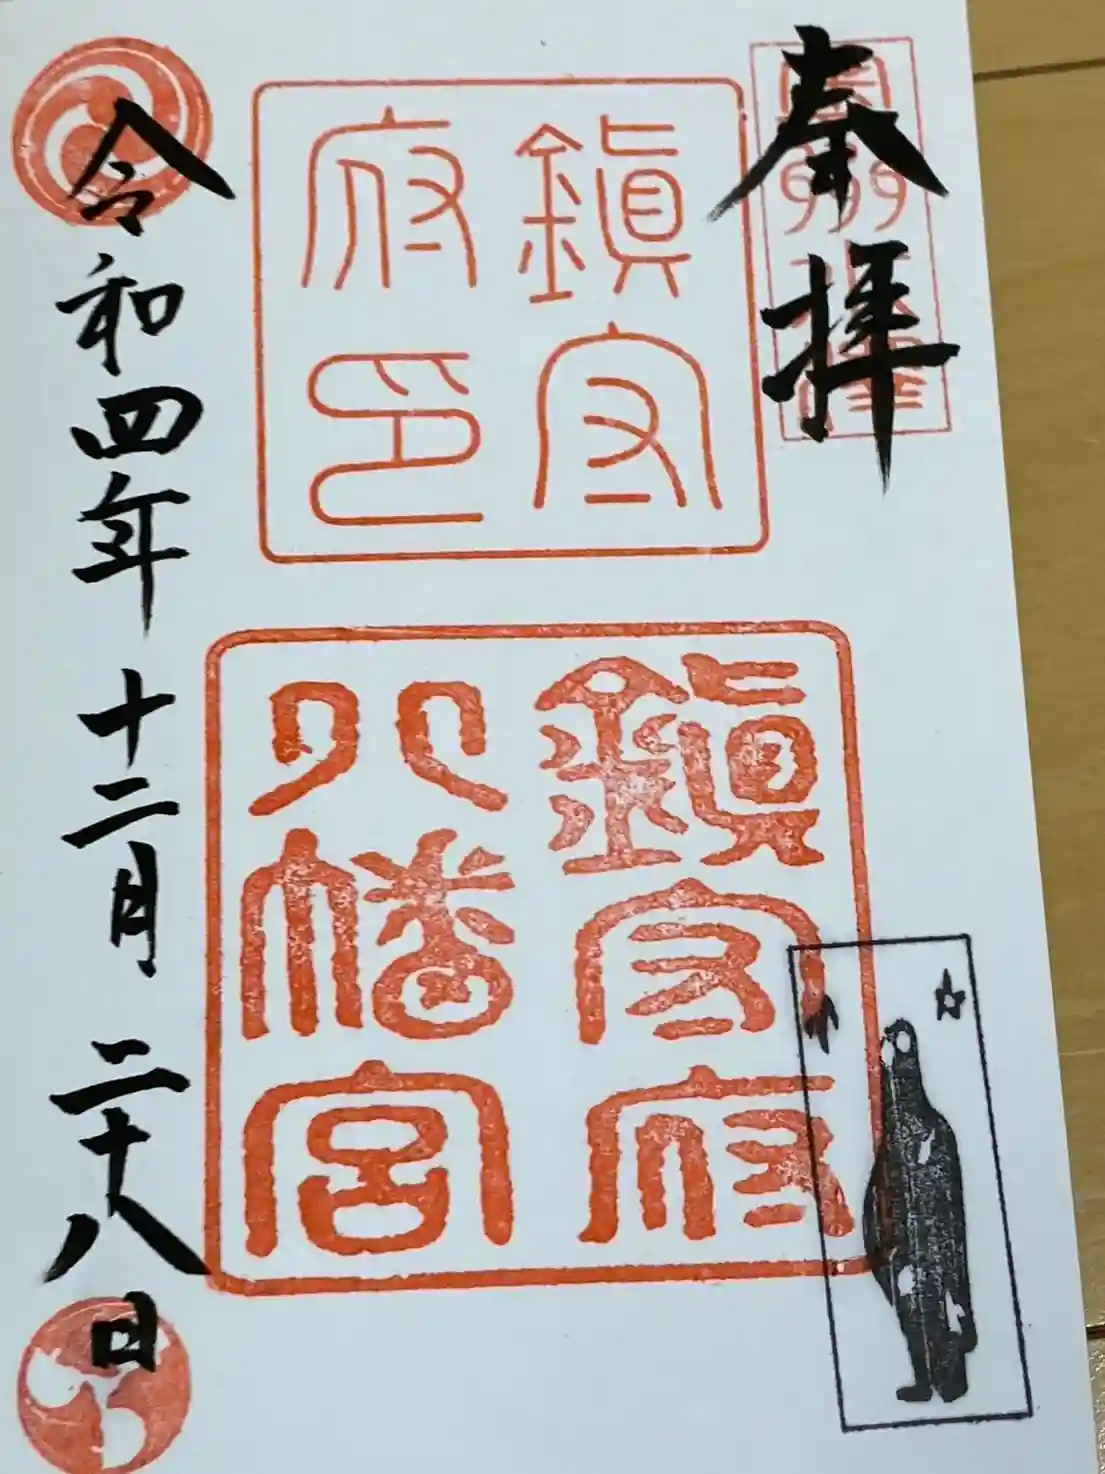 奉拝
鎭守
府印
鎭守府
八幡宮
令和四年十二月二十八日